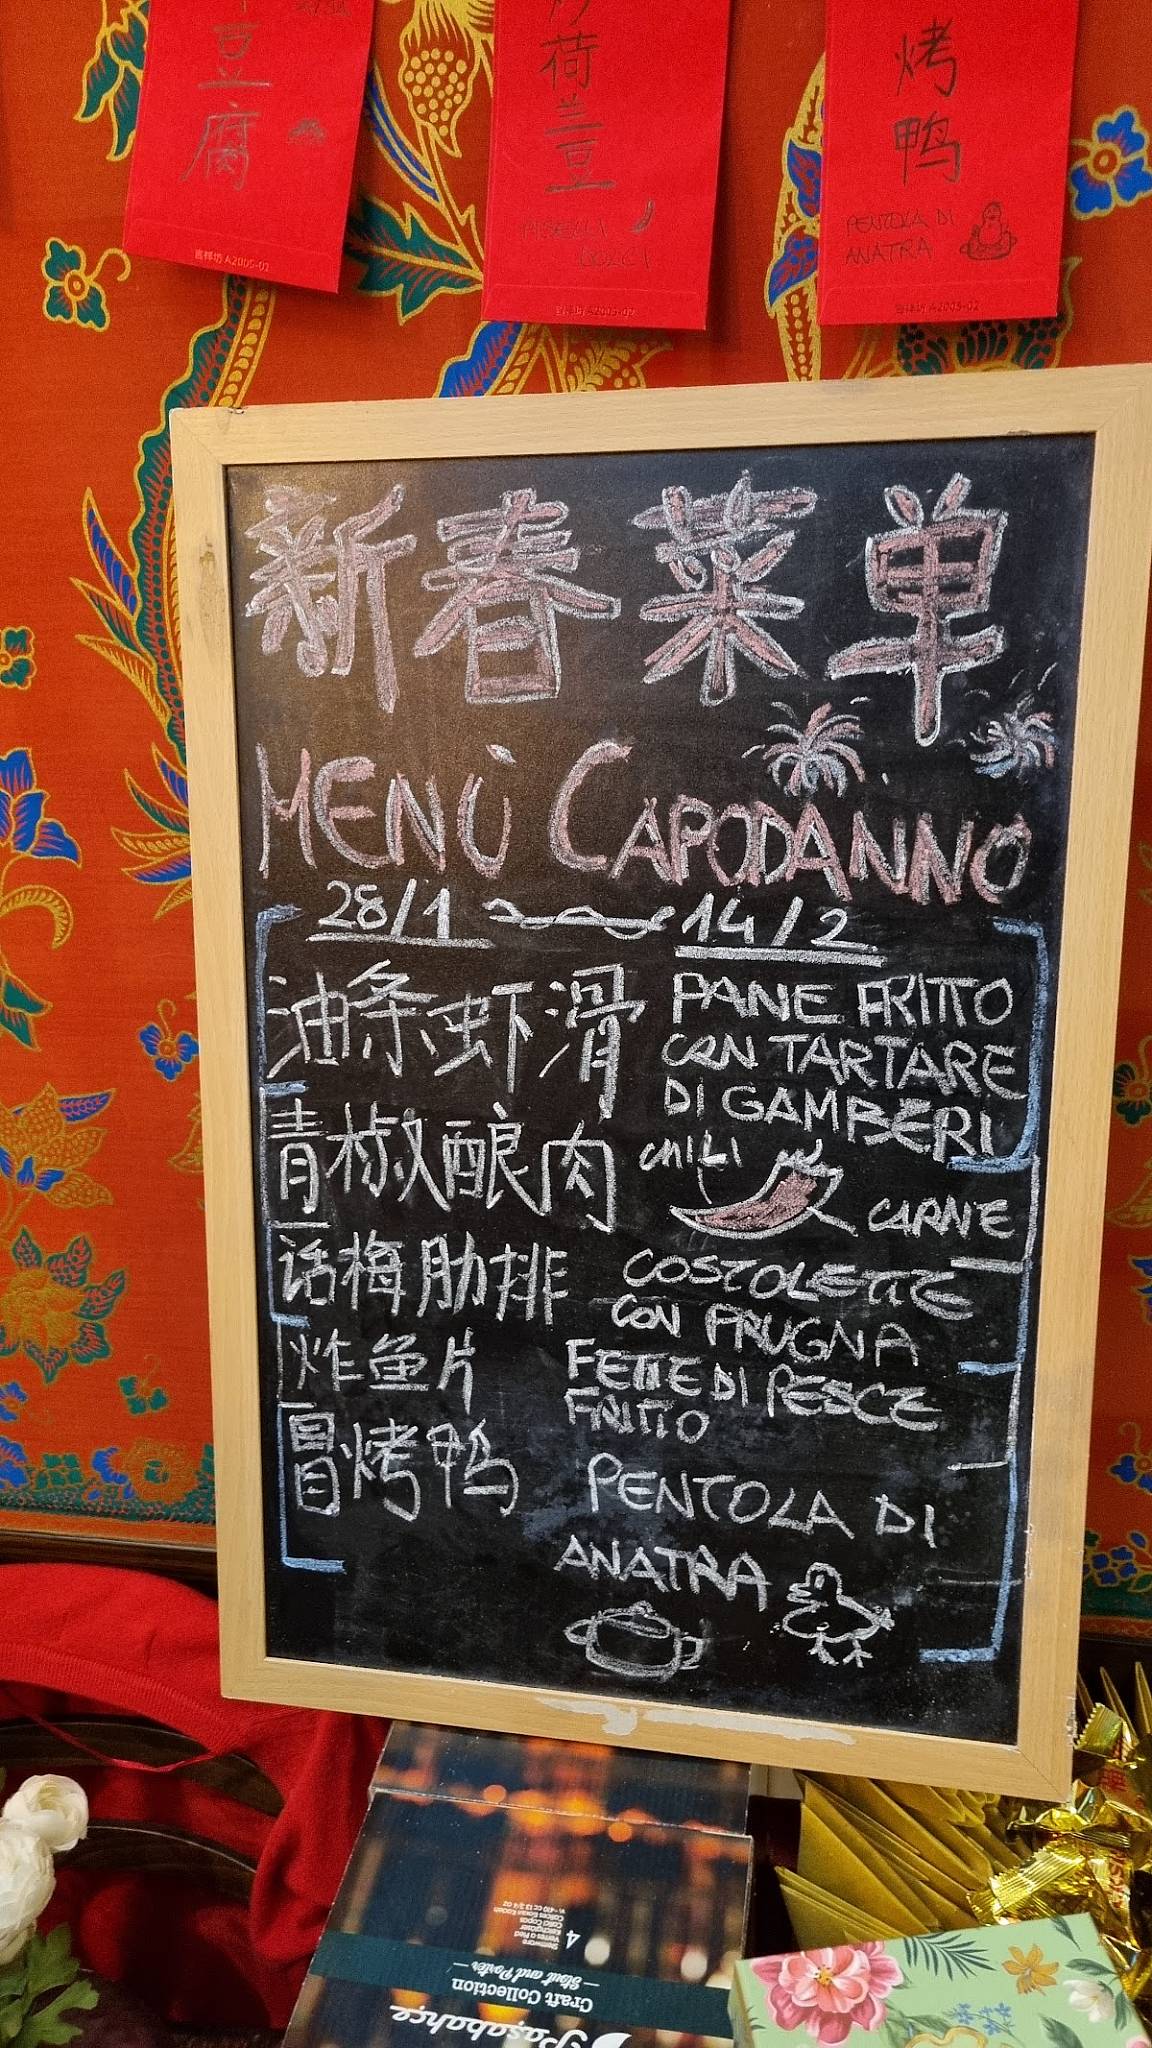 豆腐
荷兰豆
PISELLI
DOLCI
吉祥坊 A2005-02
烤鸭
PENTOLA DI
ANATRA
新春菜单
MENÙ CAPODANNO
28/1 14/2
油条虾滑 PANE FRITTO
CON TARTARE
DI GAMBERI
青椒酿肉 CHILI CARNE
话梅肋排 COSTOLETTE
CON PRUGNA
炸鱼片 FETTE DI PESCE
FRITTO
冒烤鸭 PENTOLA DI
ANATRA
Paşabahçe
Craft Collection
Stout and Porter
4